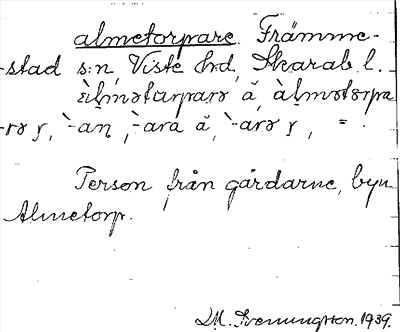 almetorpare. Främme-
-stad s:n, Viste hrd, Skarab. l.
àlmətɯrparə ă, almətɯrpa
-rə ṛ, `-aṇ, `-ara ă, `-arə ṛ, = .
Person från gårdarne, byn
Almetorp.
LM. Svenungsson. 1939.